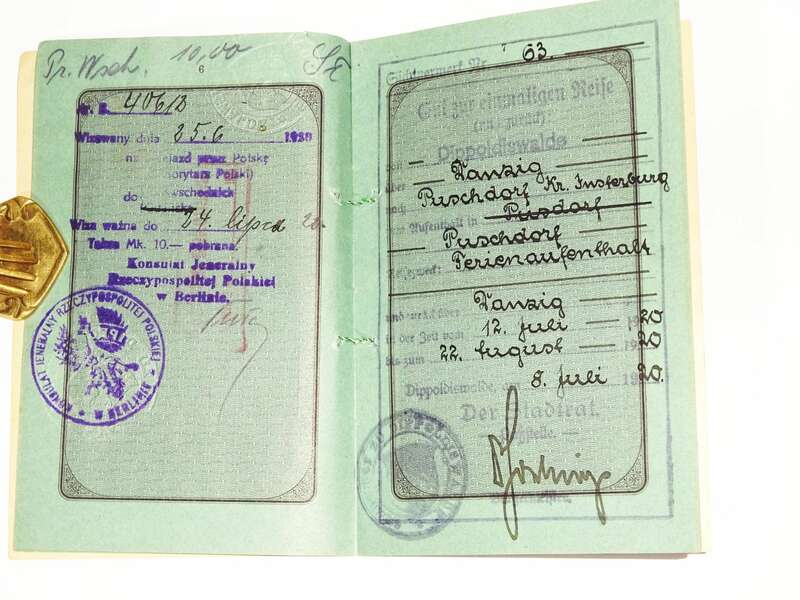 Pr. Wsch. 10,00
6
406/B
Wizowany dnia 25.6 1920
na przejazd przez Polskę
Polski)
do
Wiza ważna do 24. lipca 20.
Taksa Mk. 10.— pobrana.
Konsulat Jeneralny
Rzeczypospolitej Polskiej
w Berlinie.
KONSULAT JENERALNY RZECZYPOSPOLITEJ POLSKIEJ
W BERLINIE
Sichtvermerk Nr. 63.
Gut zur einmaligen Reise
(und zurück)
von Dippoldiswalde
über Danzig
nach Puschdorf Kr. Insterburg
zum Aufenthalt in Pusdorf
Puschdorf
Reisezweck: Ferienaufenthalt
und zurück über Danzig
in der Zeit vom 12. Juli 1920
bis zum 22. August 1920
Dippoldiswalde, den 8. Juli 1920.
Der Stadtrat.